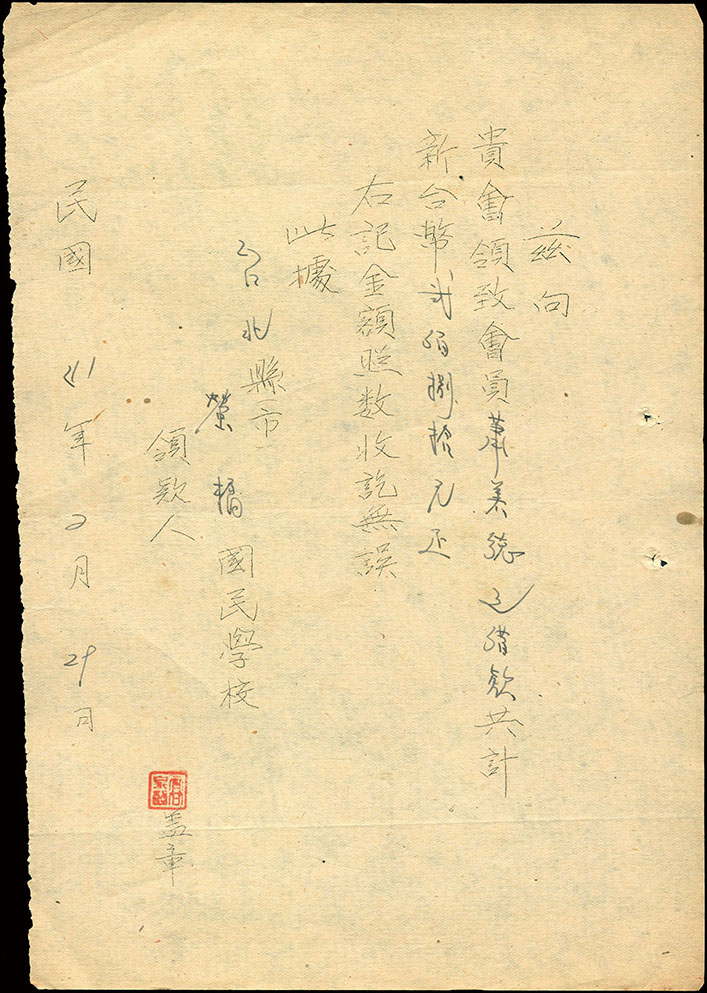 茲向
貴會領致會員蕭美德退借款共計
新台幣貳佰捌拾元正
右記金額照数收訖無誤
此據
台北縣市
螢橋國民學校
領款人
蓋章
民國41年2月29日